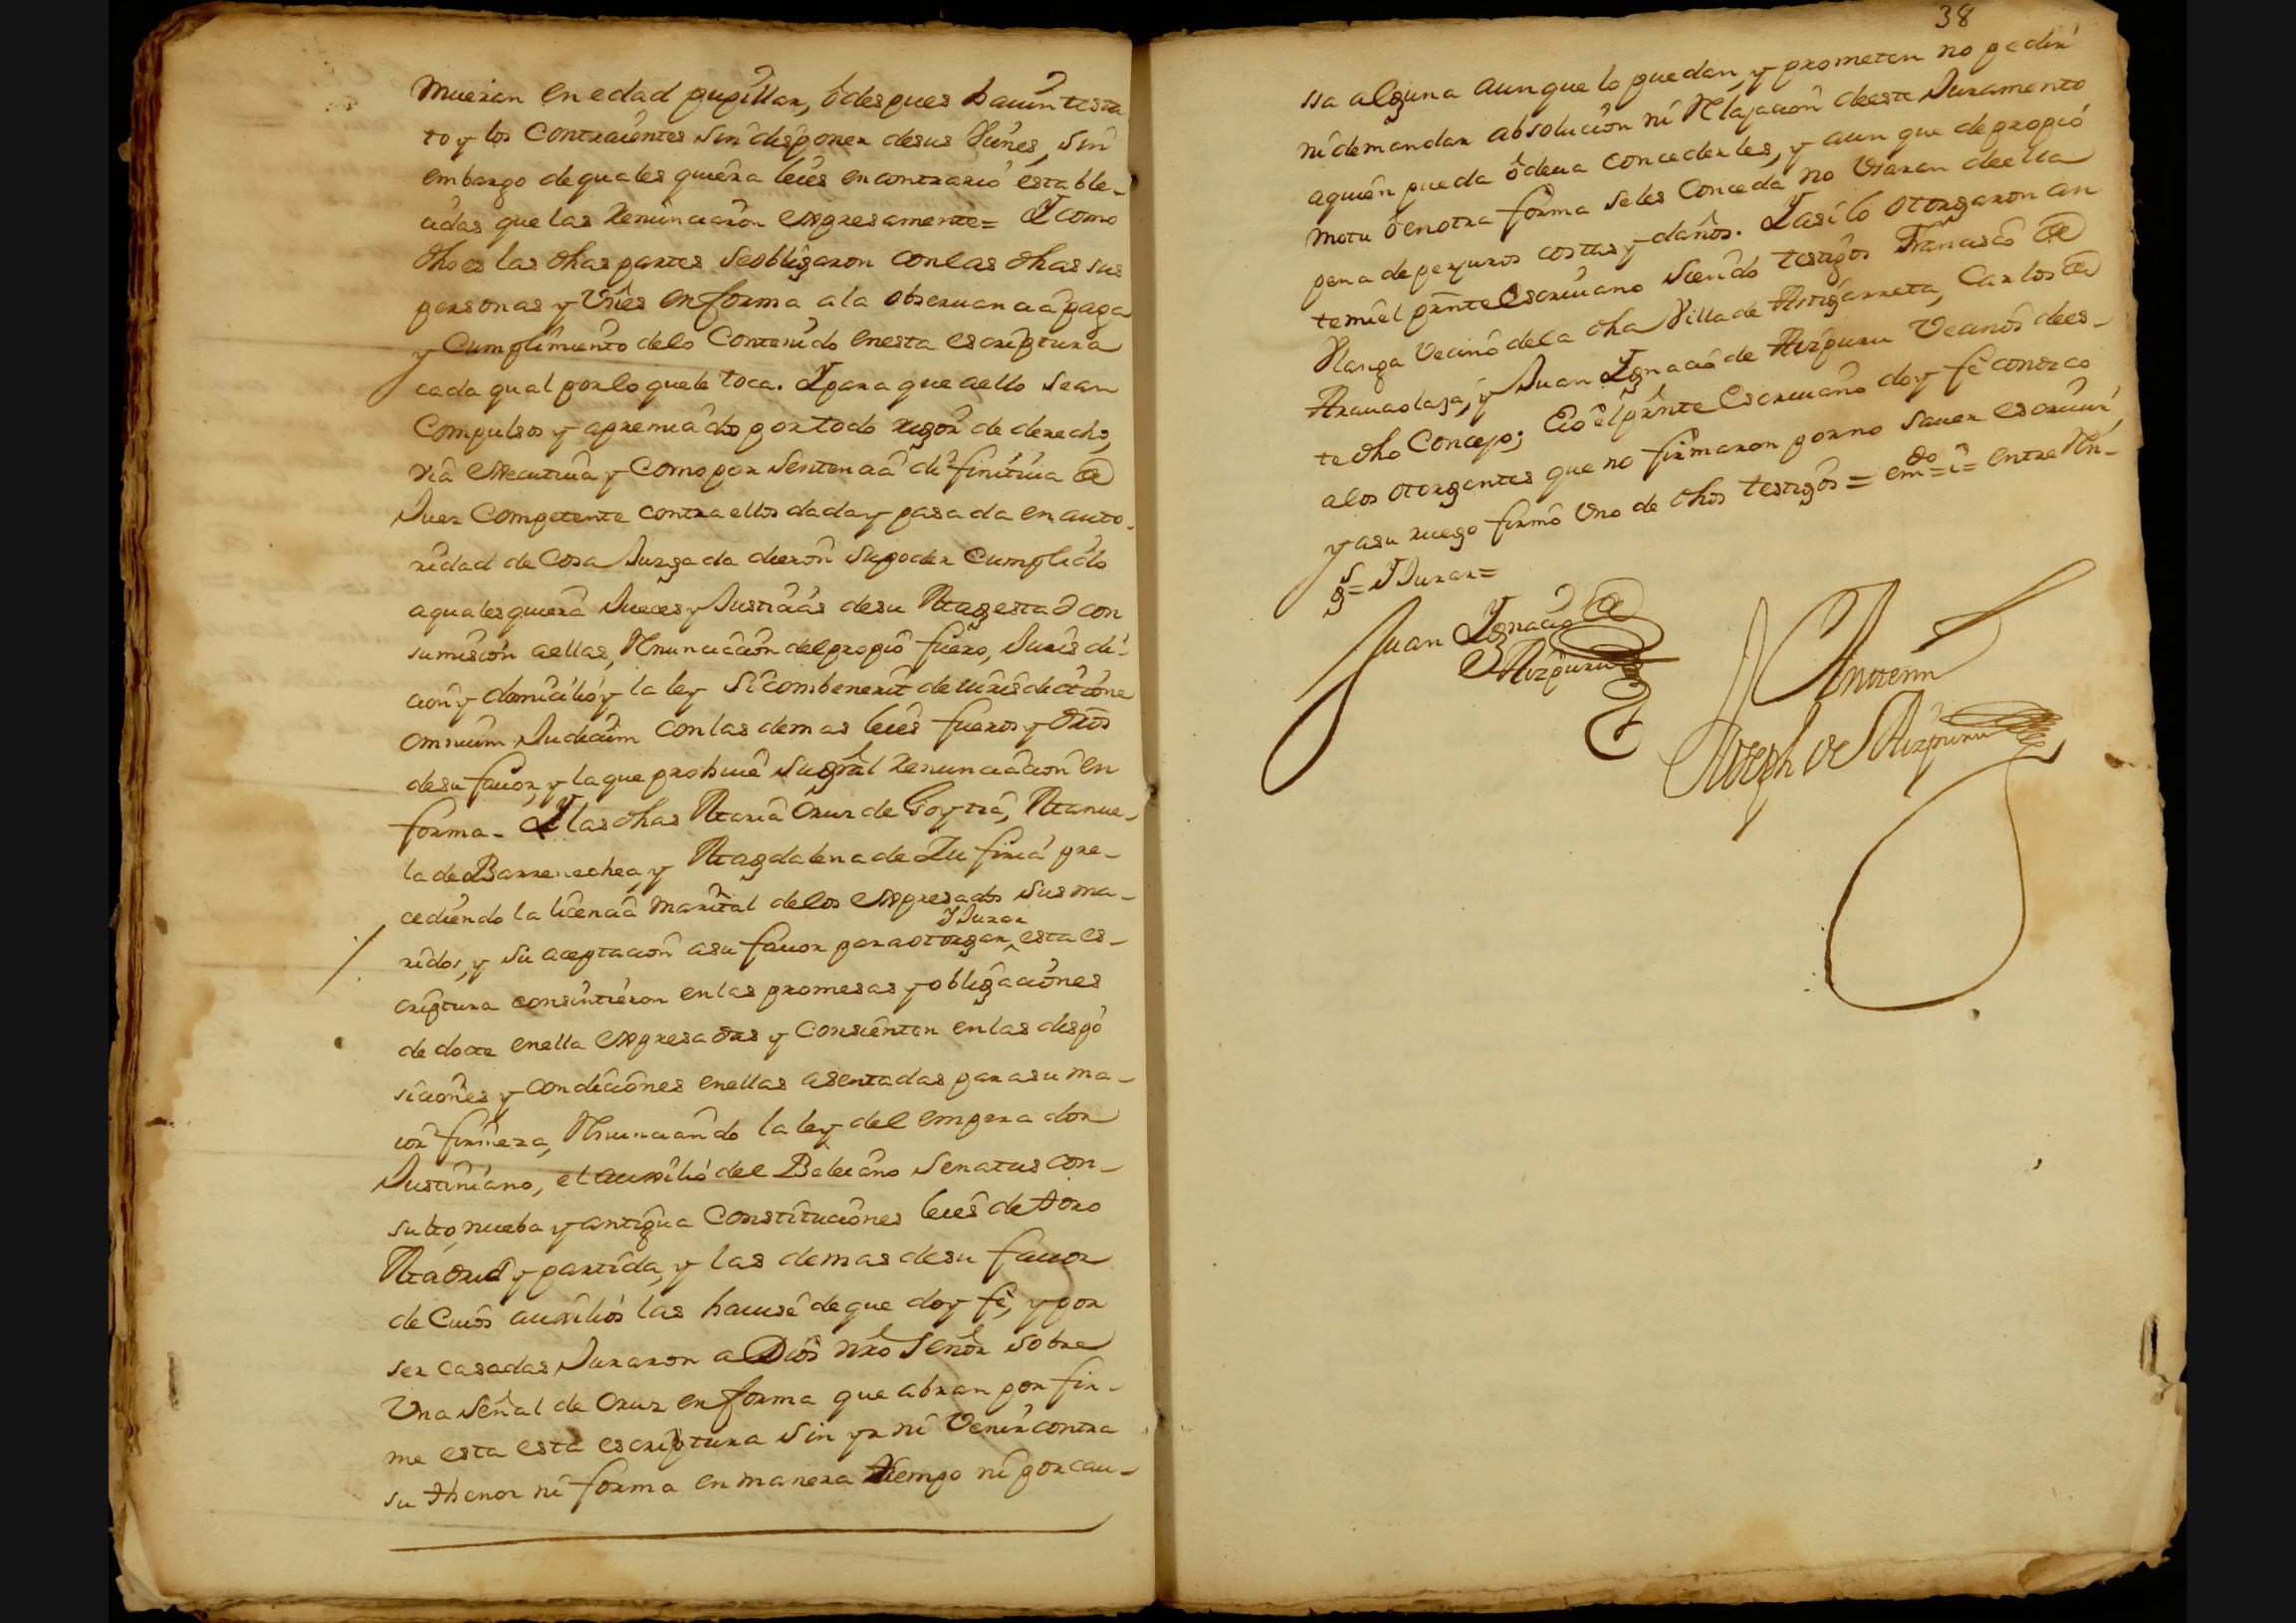 mueran en edad pupillar, ó despues havintesta
to y los Contraientes sin disponer desus Vienes, sin
embargo de quales quiera leies en contrario estable-
cidas que las Renunciaron expresamente= Y como
dho es las dhas partes se obligaron con las dhas sus
personas y Vñes en forma a la observancia paga
y Cumplimiento delo Contenido en esta escriptura
cada qual por lo que le toca. Y para que a ello sean
Compulsos y apremiados por todo rigor de derecho,
via executiva y Como por Sentencia difinitiva de
Juez Competente contra ellos dada y pasada en auto-
ridad de Cosa Juzgada dieron su poder Cumplido
a qualesquiera Jueces y Justicias de su Magestad con
sumision a ellas, Renunciacion del propio fuero, Jurisdi-
cion y domicilio y la ley Si combenerit de iurisdictione
omnium Judicum con las demas leies fueros y dros
de su favor y la que prohive su gral Renunciacion en
forma- Y las dhas Maria Cruz de Goytia, Manue-
la de Barrenechea, y Magdalena de Zufiria pre-
cediendo la licencia Marital de los expresados sus ma-
Y Jurar
ridos, y su aceptacion a su favor para otorgar esta es-
criptura consintieron en las promesas y obligaciones
de dote en ella expresadas y Consienten en las dispo
siciones y condiciones en ellas asentadas para su ma-
ior firmeza, Renunciando la ley del emperador
Justiniano, el auxilio del Beleiano Senatus con-
sulto, nueba y antigua Constituciones leies de toro
Madrid y partida, y las demas de su favor
de Cuios auxilios las havisé de que doy fé, y por
ser casadas Juraron a Dios nro Señor sobre
Una Señal de Cruz en forma que abran por fir-
me esta esta escriptura sin yr ni Venir contra
su thenor ni forma en manera tiempo ni por cau-
38
ssa alguna aunque lo puedan, y prometen no pedir
ni demandar absolucion ni Relajacion de este Juramento
a quien pueda ó deva concederles, y aun que de propio
motu ó en otra forma se les Conceda no Usaran de ella
pena de perjuros costas y daños. Y asi lo otorgaron an
te mi el prnte Escrivano siendo testigos Francisco de
Vecino de la dha Villa de Astigarreta, Carlos de
Aramolaza, y Juan Ygnacio de Aizpuru Vecinos de es-
te dho Concejo; E io el prnte Escrivano doy fé conozco
a los otorgantes que no firmaron por no saver escrivir,
y a su ruego firmó Uno de dhos testigos = emdo = i = entre Ren-
gs= Y Jurar=
Juan Ygnacio de
Aizpuru
Antemi
Joseph de Aizpuru